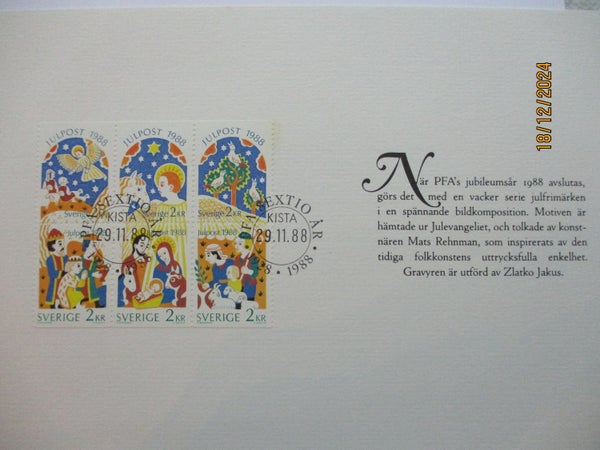 JULPOST 1988 JULPOST 1988 JULPOST 1988
Sverige 2 KR Sverige 2 KR
julpost 1988 julpost 1988
SVERIGE 2 KR SVERIGE 2 KR SVERIGE 2 KR
PFA SEXTIO ÅR
KISTA
29.11.88
1988
PFA SEXTIO ÅR
KISTA
29.11.88
1988
När PFA's jubileumsår 1988 avslutas,
görs det med en vacker serie julfrimärken
i en spännande bildkomposition. Motiven är
hämtade ur Julevangeliet, och tolkade av konst-
nären Mats Rehnman, som inspirerats av den
tidiga folkkonstens uttrycksfulla enkelhet.
Gravyren är utförd av Zlatko Jakus.
18/12/2024